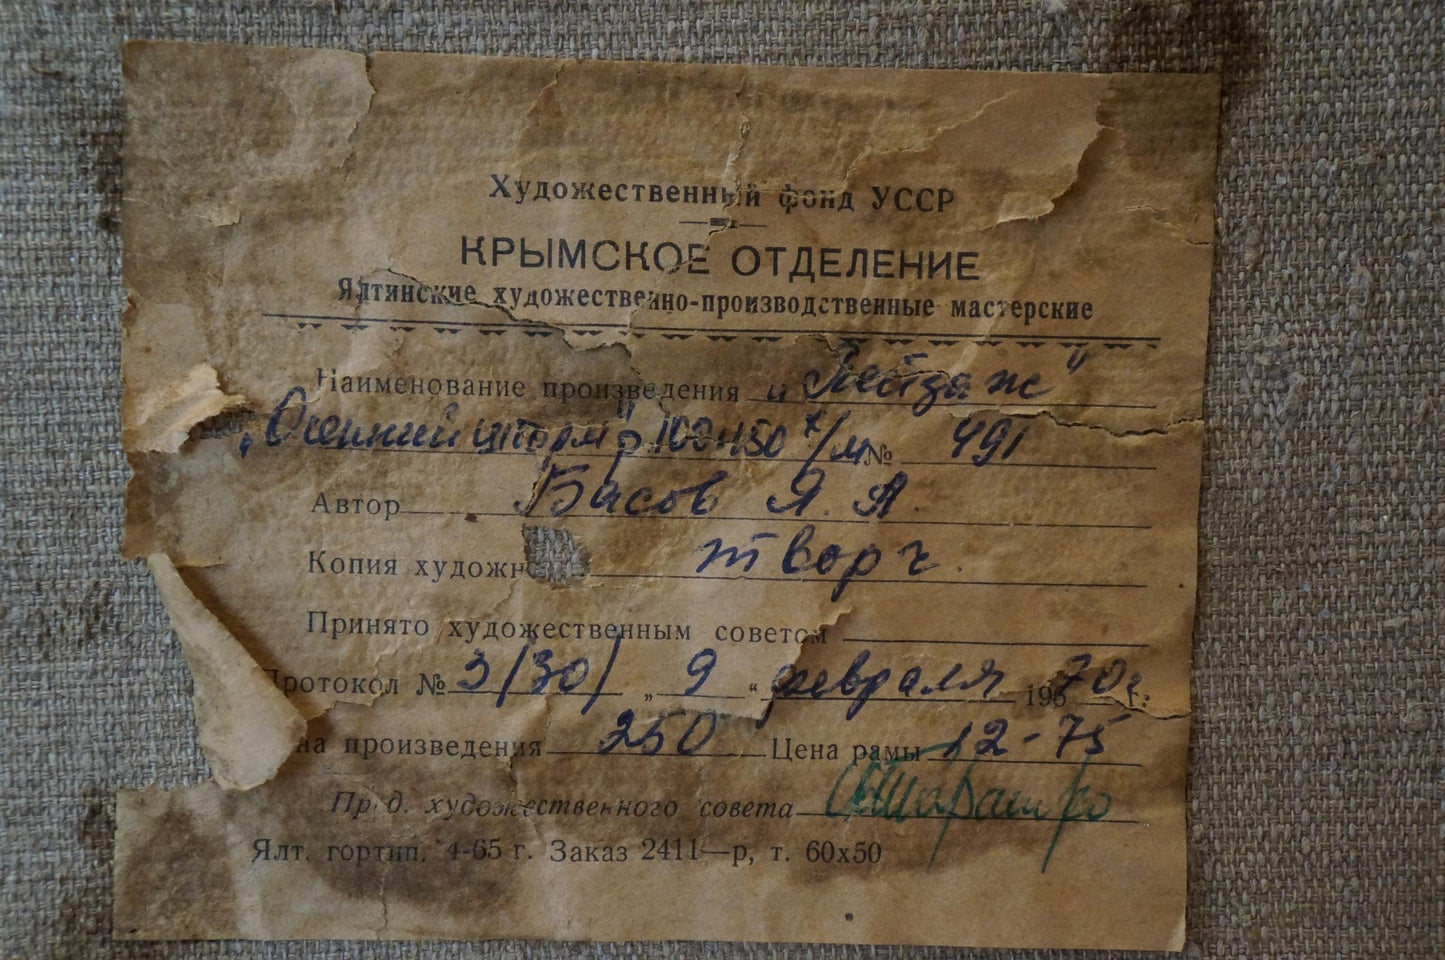 Художественный фонд УССР
КРЫМСКОЕ ОТДЕЛЕНИЕ
Ялтинские художественно-производственные мастерские
Наименование произведения „Пейзаж"
„Осенний шторм" р. 100х150 х/м № 491
Автор Басов Я. А.
Копия художн творч.
Принято художественным советом
Протокол № 3/30/ „ 9 " февраля 196 70г. г.
на произведения 250 Цена рамы 12-75
Пред. художественного совета
Ялт. гортип. 4-65 г. Заказ 2411—р, т. 60х50